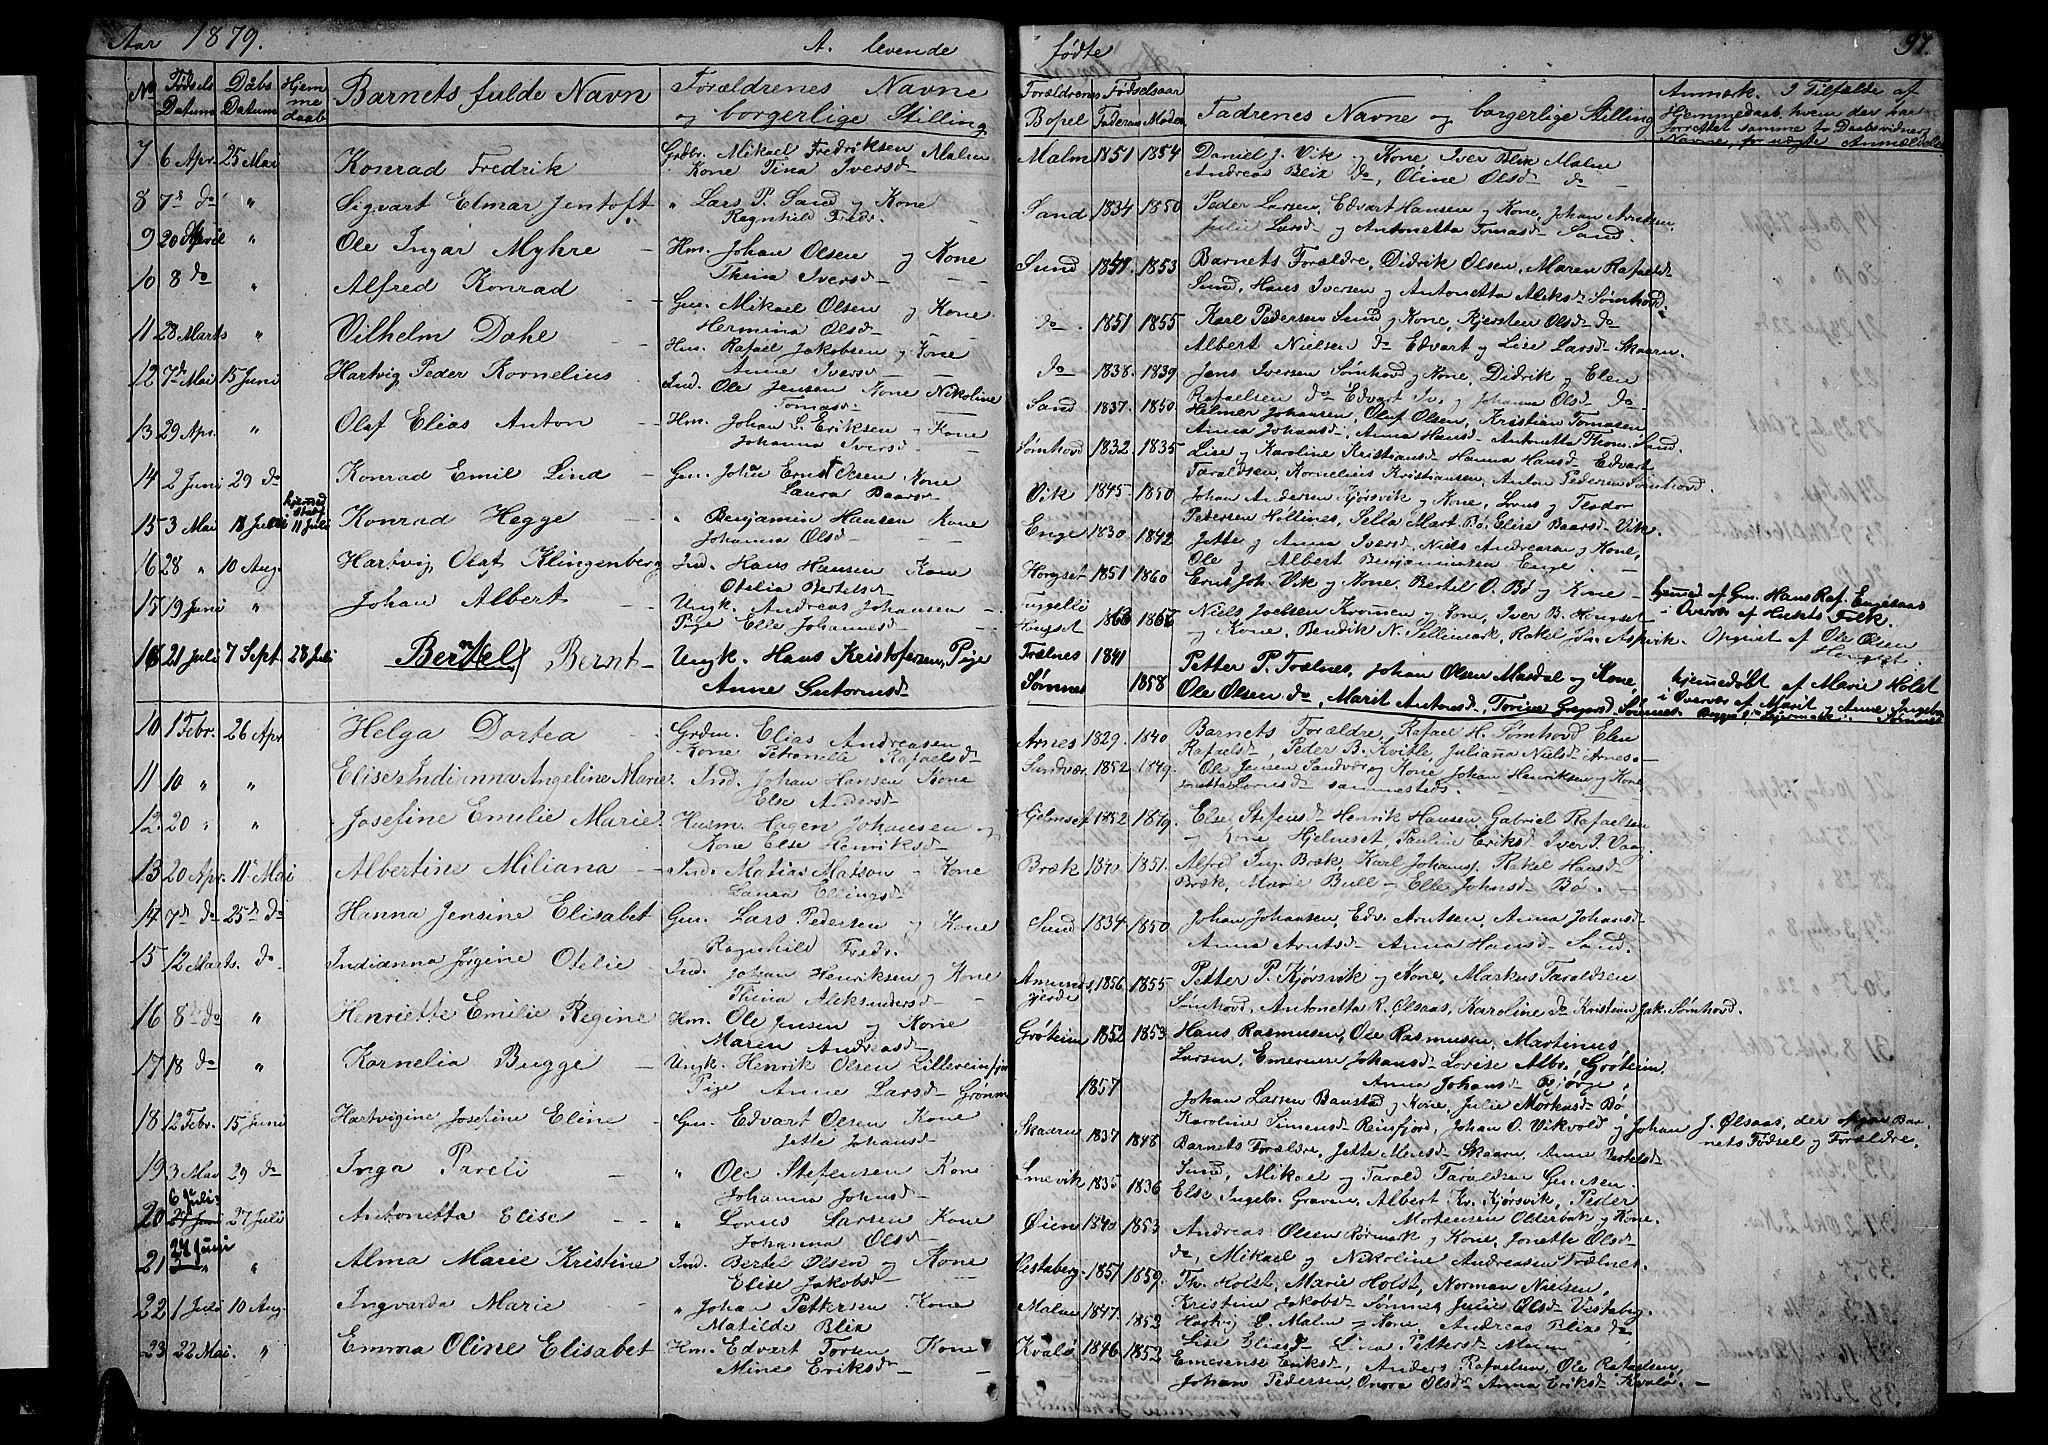 Aar 1879. A. levende fødte 97.
No Fødsels Datum Daabs Datum Hjemmedaab Barnets fulde Navn Forældrenes Navne og borgerlige Stilling Forældrenes Bopel Fødselsaar Faderens Moderens Fadrenes Navne og borgerlige Stilling Anmærk. I Tilfælde af Hjemmedaab, hvem der har forrettet samme
7 6 Apr. 25 Mai Konrad Fredrik Grdbr. Mikael Fredriksen Malm Kone Tina Iversd Malm 1851 1854 Daniel J. Vik og Kone Iver Blix Malm
Andreas Blix do, Oline Olsd do
8 7de do " Sigvart Elmar Jentoft " Lars P. Sand og Kone Ragnhild Fredr. Sand 1834 1850 Peder Larsen, Edvart Hansen og Kone, Johan Arntsen
Julie Larsd og Antonetta Tomasd Sand.
9 20 April " Ole Ingar Myhre Hm. Johan Olsen og Kone Thina Iversd Sund 1853 Barnets Forældre, Didrik Olsen, Maren Rafaelsd
Sund, Hans Iversen og Antonetta Aleksd Sømhovd.
10 8 do " Alfred Konrad Gm. Mikael Olsen og Kone Hermina Olsd do. 1851 1855 Karl Pedersen Sund og Kone, Kjersten Olsd do
Albert Nielsen do Edvart og Lise Larsd Skaarn.
11 28 Marts " Vilhelm Dahe Hm. Rafael Jakobsen og Kone Anne Iversd do 1838. 1839 Jens Iversen Sømhovd og Kone, Didrik og Elen
Rafaelsen do Edvart Iv. og Johanna Olsd do
12 7de Mai 15 Juni Hartvig Peder Kornelius Ind. Ole Jensen Kone Nikoline Tomasd Sand 1837. 1850. Helmer Johansen, Oluf Olsen, Kristian Tomasen
Anna Johansd, Anna Hansd Antonetta Thom. Sand.
13 29 Apr. " Olaf Elias Anton Hm. Johan L. Eriksen Kone Johanna Iversd Sømhovd 1832 1835 Lise og Karoline Kristiansd Hanna Hansd Edvart
Taraldsen, Kornelius Kristiansen, Anton Pedersen Sømhovd.
14 2 Juni 29 do Konrad Emil Lind Gm. Johan Ernst Olsen Kone Laura Baarsd Vik 1845. 1850 Johan Andersen Kjørsvik og Kone, Lorns og Teodor
Pedersen Hillines, Sella Mart. Bø, Elise Baarsd Vik.
15 3 Mai 13 Juli 11 Juli Konrad Hegge " Benjamin Hansen Kone Johanna Olsd Enge 1830 1842 Jette og Anna Iversd Niels Andreasen og Kone,
Ole og Albert Benjaminsen Enge.
16 28 " 10 Aug. Hartvig Olaf Klingenberg Ind. Hans Hansen Kone Otelia Bertelsd Horgset 1851 1860 Ernst Joh. Vik og Kone, Bertel O. Bø og Kone
17 19 Juni " Johan Albert Ungk. Andreas Johansen Pige Elle Johannesd Horgset Niels Joensen og Kone, Iver B. Horgset
og Kone, Bendik N. Tellemark, Rakel Joh. Aspvik. hjemmed. af Gm. Hans Raf. Engesaas i Overv. af Husets Folk. Opgivet af Ole Olsen Horgset.
18 21 Juli 7 Sept 28 Juli Bertel Bernt Ungk. Hans Kristofersen, Pige Anne Gutormsd Trælnes Sømnes 1841 1858 Petter P. Trælnes, Johan Olsen Mardal og Kone,
Ole Olsen do, Marit Antonsd, Torine Gregersd Sømnes hjemmedøbt af Marie Holst i Overvær af Marit og Anne Ingebr.
10 1 Febr. 26 Apr Helga Dortea Grdm. Elias Andreasen Kone Petronelle Rafaelsd Arnes 1829. 1840 Barnets Forældre, Rafael H. Sømhovd Elen
Rafaelsd, Peder B. Kvitle, Julianna Nielsd Arnes
11 10 " " Elise Indianna Angeline Marie Ind. Johan Hansen Kone Else Andersd Sandvær 1852 1849. Ole Jensen Sandvær og Kone Johan Henriksen og Kone
Lornsd sammesteds.
12. 20 " " Josefine Emilie Marie Husm. Hagen Johansen og Kone Else Henriksd Hjelmset 1852 1849. Else Stefensd Henrik Hansen, Gabriel Rafaelsen
og Kone Hjelmset, Pauline Eriksd Iver I. Vaag.
13 20 Apr. 11 Mai Albertine Miliana Ind. Matias Matson Kone Laura Ellingsd Bræk 1840 1851. Alfred Ing. Bræk, Karl Johans. Rakel Hansd
Bræk, Marie Bull og Elle Johnsd Bø.
14 7de do 25de do Hanna Jensine Elisabet Gm. Lars Pedersen og Kone Ragnhild Fredr. Sund 1834 1850 Johan Johansen, Edv. Arntsen, Anna Johansd
Anna Arntsd Anna Hansd Sand.
15 12 Marts do Indianna Jørgine Otelie Ind. Johan Henriksen og Kone Thina Aleksandersd Amunds gjerde 1856. 1855 Petter P. Kjørsvik og Kone, Markus Taraldsen
Sømhovd, Antonetta R. Ølsaas, Karoline do Kristian Jak. Sømhovd.
16 8de do " Henriette Emilie Regine Hm. Ole Jensen og Kone Maren Andreasd Grøtheim 1852 1853 Hans Rasmusen, Ole Rasmusen, Martinus
Larsen, Emerense Johansd Lovise Albr. Grøtheim,
17 18 do " Kornelia Bugge Ungk. Henrik Olsen Pige Anne Larsd Grønm 1857 Anna Johansd Bjørge,
Johan Larsen Banstad og Kone, Julie Mørkusd Bø,
18 12 Febr. 15 Juni Hartvigine Josefine Eline Gm. Edvart Olsen Kone Jette Johansd Skaarn 1837 1848 Karoline Simensd Reinfjord, Johan O. Vikvold og Johan J. Ølsaas, der Barnets Fødsel og Forældre.
Barnets Forældre, Jette Skaarn, Anne Bertelsd
19 3 Mai 29 do Inga Pareli " Ole Stefensen Kone Johanna Johnsd 1835 1836 Sund, Mikael og Tarald Taraldsen
Else Ingebr. Graven, Albert Kr. Kjørsvik, Peder
20 6 Juli 27 Juli Antonetta Elise " Lorns Larsen Kone Johanna Olsd Øien 1840 1853 Mortensen Olderbak og Kone.
Andreas Olsen Rørmark og Kone, Jonetta Olsd
21 24 Juni " Alma Marie Kristine Ind. Berte Olsen og Kone Elise Jakobsd Vestaberg 1851 1859. do, Mikael og Nikoline Andreasen Trælnes.
Th. Holst, Marie Holst, Norman Nielsen,
22 1 Juli 10 Aug. Ingvarda Marie " Johan Pettersen Kone Matilde Blix Malm 1847. 1852 Kristine Jakobsd Sømnes, Julie Olsd Vestaberg.
Hartvig L. Malm og Kone, Andreas Blix do
23 22 Mai. " Emma Oline Elisabet Hm. Edvart Torsen Kone Mine Eriksd Kvalø 1846 1852 Lise Eliasd Lina Pettersd Malm
Emerense Eriksd, Anders Rafaelsen, Ole Rafaelsen,
Johan Pedersen, Onora Olsd Anna Eriksd Kvalø.